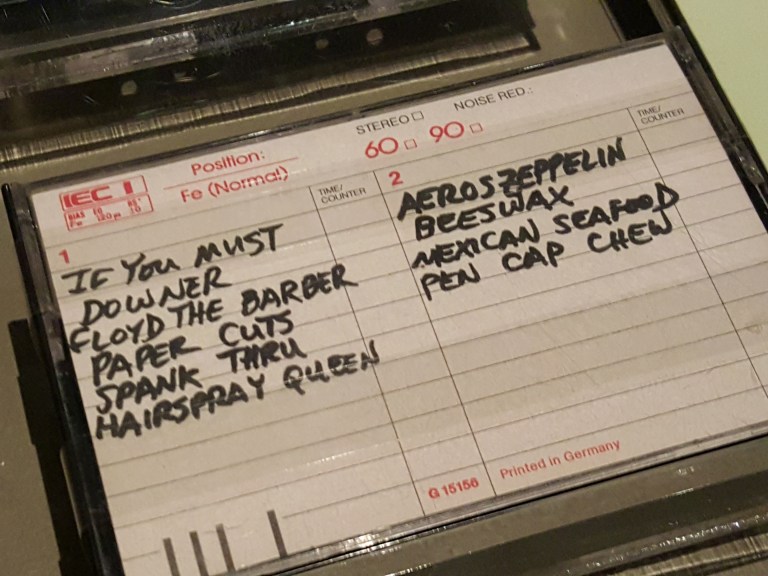 STEREO □ NOISE RED.:
60 □ 90 □
Position:
Fe (Normal)
IEC I
TIME/
COUNTER
TIME/
COUNTER
1
IF YOU MUST
DOWNER
FLOYD THE BARBER
PAPER CUTS
SPANK THRU
HAIRSPRAY QUEEN
2
AEROSZEPPELIN
BEESWAX
MEXICAN SEAFOOD
PEN CAP CHEW
G 15156
Printed in Germany